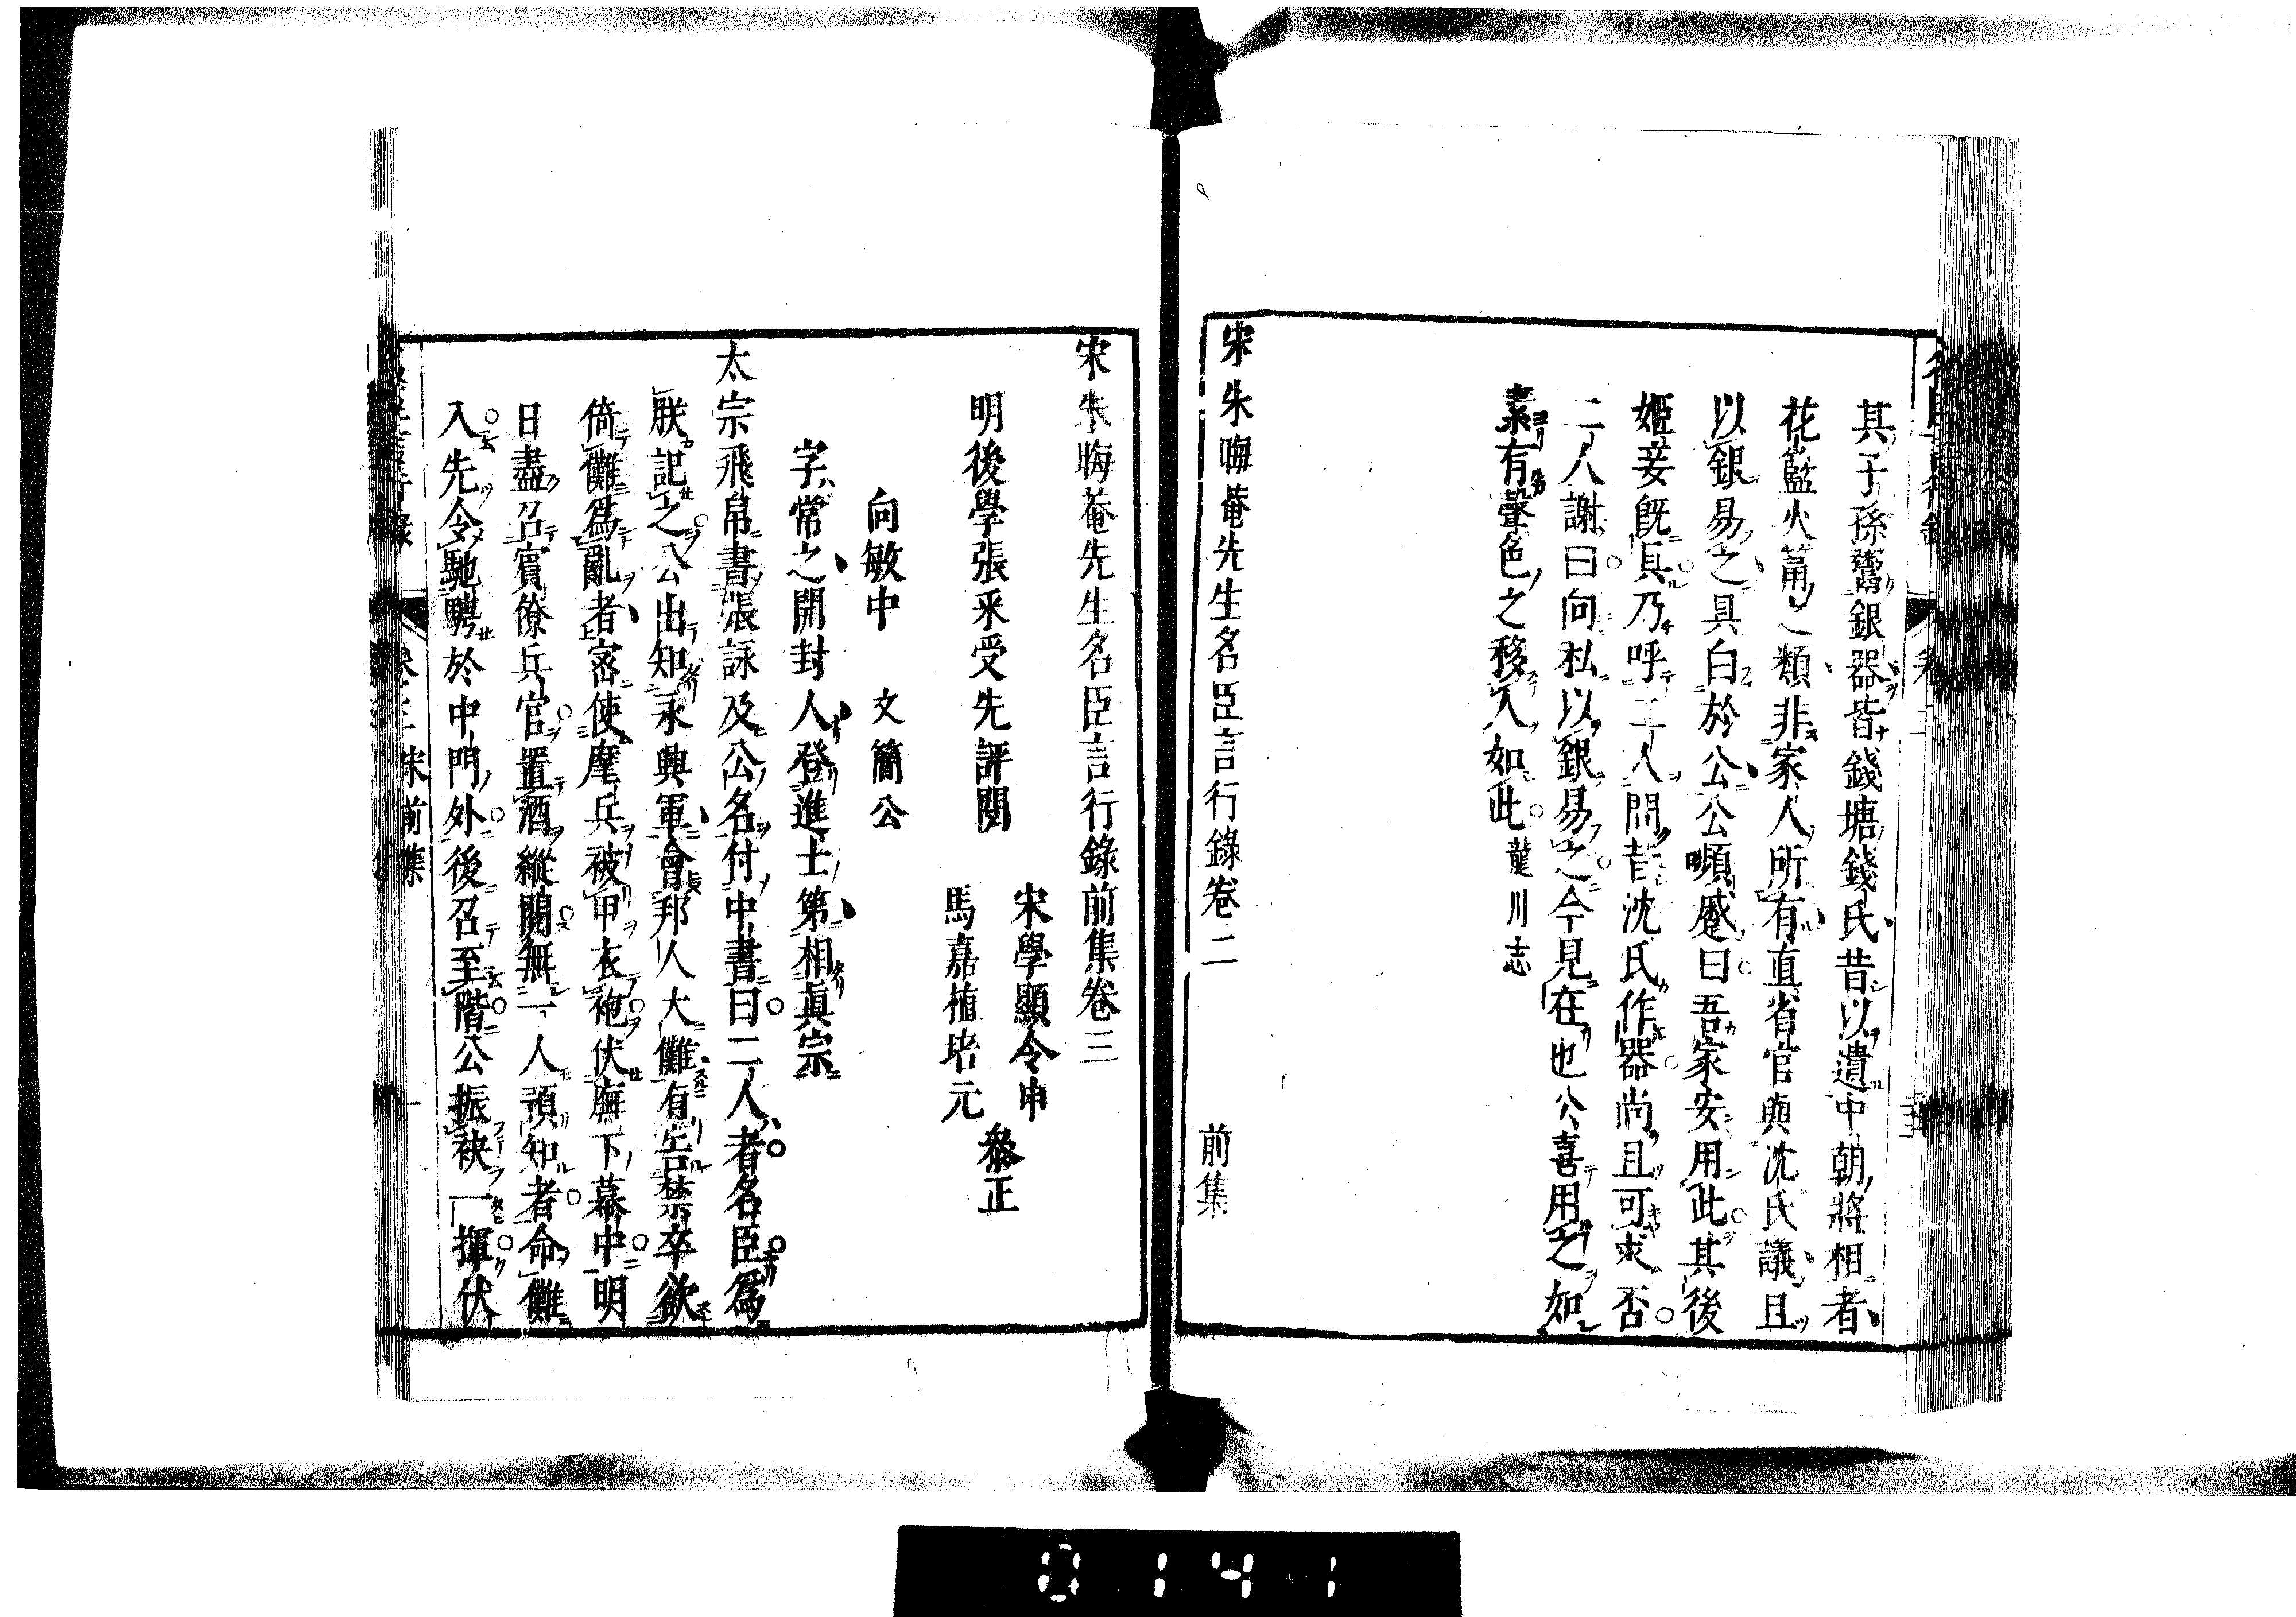 其子孫鬻銀器皆錢塘錢氏昔以遺中朝將相者
花籃火筩之類非家人所有直省官與沈氏議且
以銀易之具白於公公嚬蹙曰吾家安用此其後
姬妾旣具乃呼二人問昔沈氏作器尚且可求否
二人謝曰向私以銀易之今見在也公喜用之如
素有聲色之移人如此龍川志
宋朱晦菴先生名臣言行錄卷二 前集
宋朱晦菴先生名臣言行錄前集卷三
宋學顯令申
明後學張采受先評閱
馬嘉植培元
叅正
向敏中 文簡公
字常之開封人登進士第相眞宗
太宗飛帛書張詠及公名付中書曰二人者名臣爲
朕記之公出知永興軍會邦人大儺有告禁卒欲
倚儺爲亂者密使麾兵被甲衣袍伏廡下幕中明
日盡召賓僚兵官置酒縱閱無一人預知者命儺
入先令馳騁於中門外後召至階公振袂一揮伏
宋前集
0141